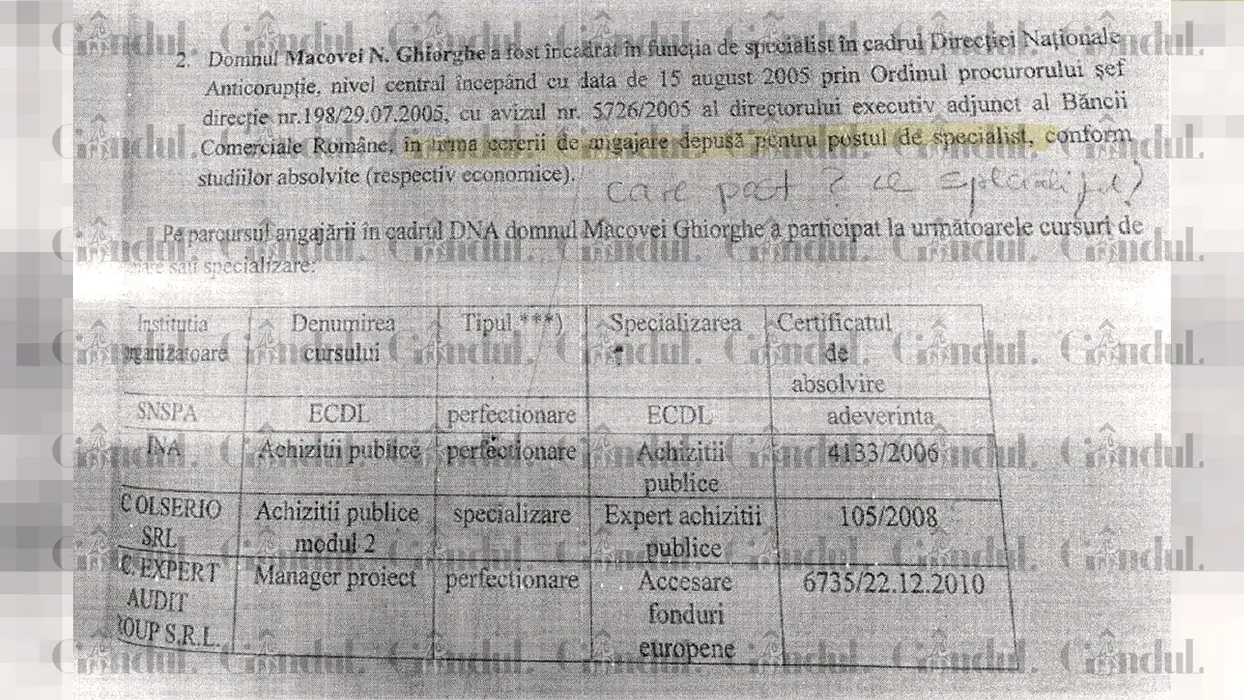 2. Domnul Macovei N. Ghiorghe a fost încadrat în funcția de specialist în cadrul Direcției Naționale
Anticorupție, nivel central începând cu data de 15 august 2005 prin Ordinul procurorului șef
direcție nr.198/29.07.2005, cu avizul nr. 5726/2005 al directorului executiv adjunct al Băncii
Comerciale Române, în urma cererii de angajare depusă pentru postul de specialist, conform
studiilor absolvite (respectiv economice).
care post ? ce
Pe parcursul angajării în cadrul DNA domnul Macovei Ghiorghe a participat la următoarele cursuri de
sau specializare:
Institutia
Denumirea
Tipul ***)
Specializarea
Certificatul
organizatoare
cursului
de
absolvire
SNSPA
ECDL
perfectionare
ECDL
adeverinta
INA
Achizitii publice
perfectionare
Achizitii
4133/2006
publice
COLSERIO
Achizitii publice
specializare
Expert achizitii
105/2008
SRL
modul 2
publice
C. EXPERT
Manager proiect
perfectionare
Accesare
6735/22.12.2010
AUDIT
fonduri
ROUP S.R.L.
europene
Gândul.